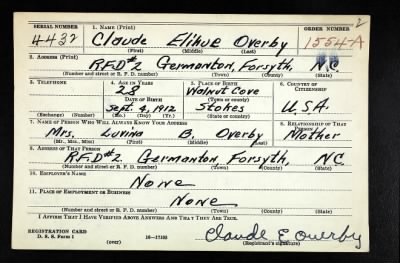 2
SERIAL NUMBER 1. NAME (Print) ORDER NUMBER
4432 Claude Elihue Overby 1554-A
(First) (Middle) (Last)
2. ADDRESS (Print)
R.F.D #2 Germanton, Forsyth, N.C.
(Number and street or R. F. D. number) (Town) (County) (State)
3. TELEPHONE 4. AGE IN YEARS 5. PLACE OF BIRTH 6. COUNTRY OF CITIZENSHIP
28 Walnut Cove
DATE OF BIRTH (Town or county)
Sept. 4, 1912 Stokes U.S.A.
(Exchange) (Number) (Mo.) (Day) (Yr.) (State or country)
7. NAME OF PERSON WHO WILL ALWAYS KNOW YOUR ADDRESS 8. RELATIONSHIP OF THAT PERSON
Mrs. Luvina B. Overby Mother
(Mr., Mrs., Miss) (First) (Middle) (Last)
9. ADDRESS OF THAT PERSON
R.F.D #2. Germanton, Forsyth, N.C.
(Number and street or R. F. D. number) (Town) (County) (State)
10. EMPLOYER'S NAME
None
11. PLACE OF EMPLOYMENT OR BUSINESS
None
(Number and street or R. F. D. number) (Town) (County) (State)
I AFFIRM THAT I HAVE VERIFIED ABOVE ANSWERS AND THAT THEY ARE TRUE.
REGISTRATION CARD
D. S. S. Form 1 (over) 16-17105 Claude E Overby
(Registrant's signature)